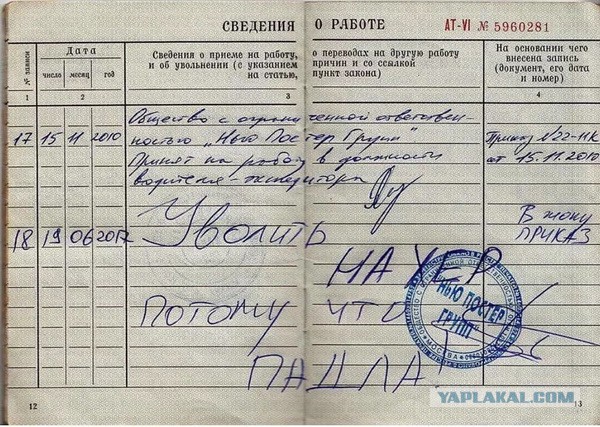 СВЕДЕНИЯ О РАБОТЕ АТ-VI № 5960281
№ записи
Дата
Сведения о приеме на работу, о переводах на другую работу
и об увольнении (с указанием причин и со ссылкой
на статью, пункт закона)
На основании чего
внесена запись
(документ, его дата
и номер)
число месяц год
1 2 3 4
Общество с ограниченной ответствен-
ностью „Нью Постер Групп"
17 15 11 2010 Принят на работу в должности
водителя-экспедитора
Приказ №22-НК
от 15.11.2010
18 19 06 2017 Уволить
НАХЕР
ПОТОМУ ЧТО
ПАДЛА.
В жопу
ПРИКАЗ
"НЬЮ ПОСТЕР
ГРУПП"
МОСКВА
12 13
YAPLAKAL.COM